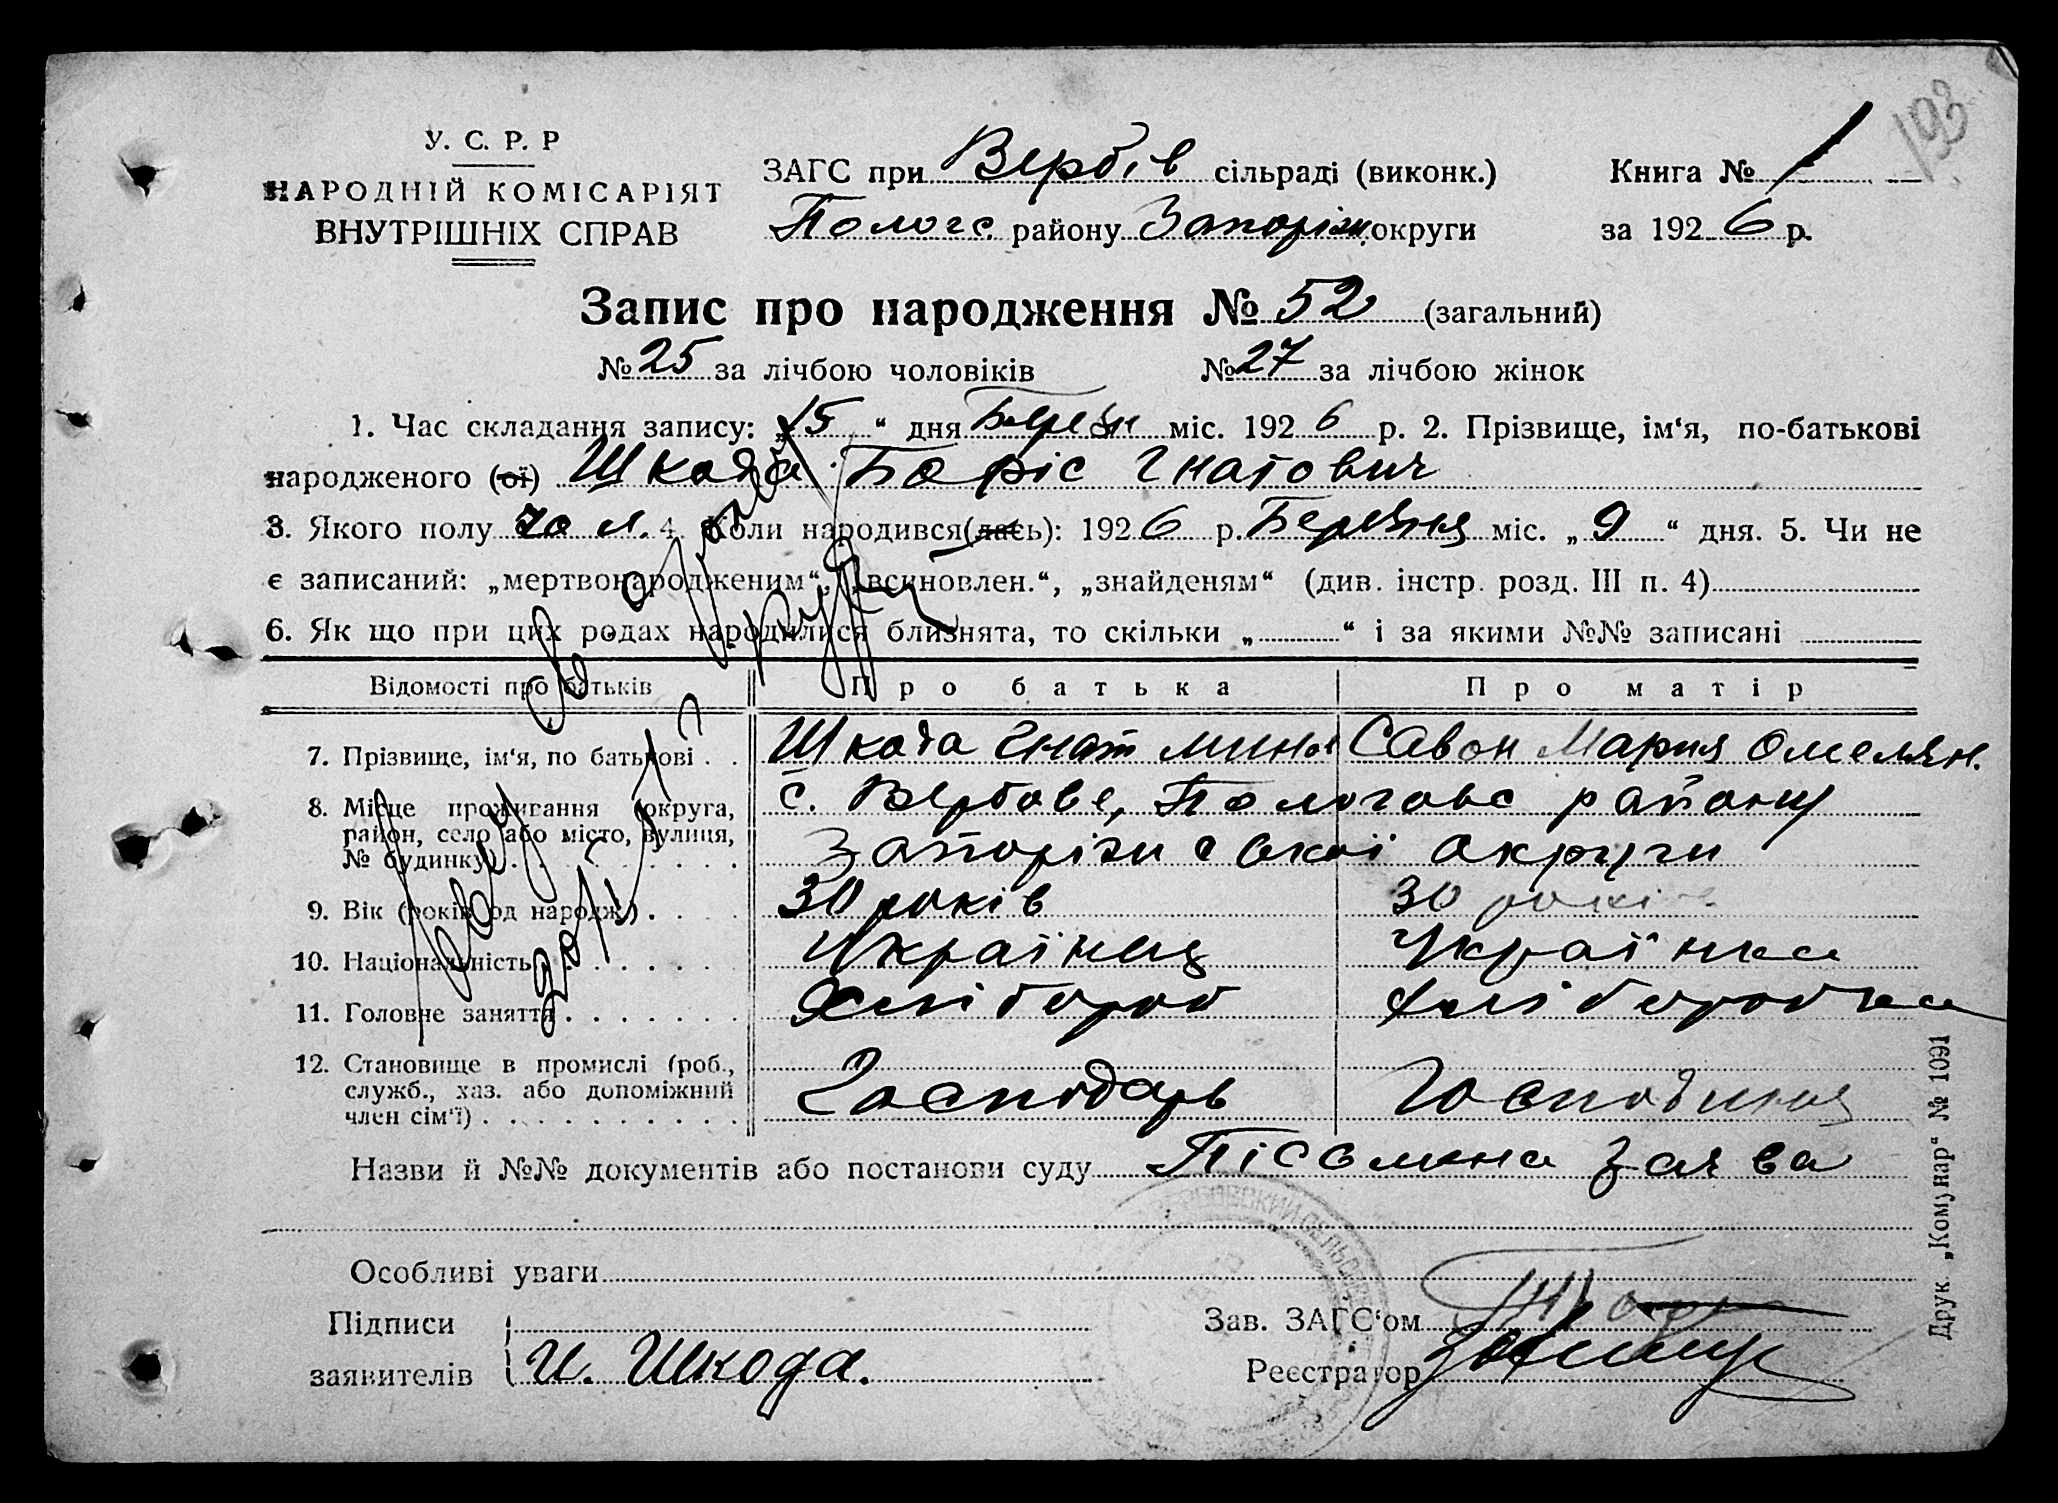 193
У. С. Р. Р
НАРОДНІЙ КОМІСАРІЯТ
ВНУТРІШНІХ СПРАВ
ЗАГС при Вербів сільраді (виконк.)
Пологс. району Запоріж округи
Книга № 1
за 1926 р.
Запис про народження № 52 (загальний)
№ 25 за лічбою чоловіків № 27 за лічбою жінок
1. Час складання запису: „15“ дня Березн міс. 1926 р. 2. Прізвище, ім‘я, по-батькові
народженого (ої) Шкода Боріс Гнатович
3. Якого полу чол. 4. Коли народився(лась): 1926 р. Березня міс. „9“ дня. 5. Чи не
є записаний: „мертвонародженим“, „всиновлен.“, „знайденям“ (див. інстр. розд. III п. 4)
6. Як що при цих родах народилися близнята, то скільки „ “ і за якими №№ записані
Відомості про батьків Про батька Про матір
7. Прізвище, ім‘я, по батькові Шкода Гнат Минов Савон Мария Омелян.
8. Місце проживання (округа, район, село або місто, вулиця, № будинку) с. Вербове, Пологовс району
Запоріжської округи
9. Вік (років од народж.) 30 років 30 років
10. Національність Українец Українка
11. Головне заняття Хлібороб Хліборобка
12. Становище в промислі (роб., служб., хаз. або допоміжний член сім‘ї) Господарь Господиня
Назви й №№ документів або постанови суду Пісьмена заява
Особливі уваги
Підписи
заявителів И. Шкода.
Зав. ЗАГС‘ом
Реєстратор
Друк. „Комунар“ № 1091